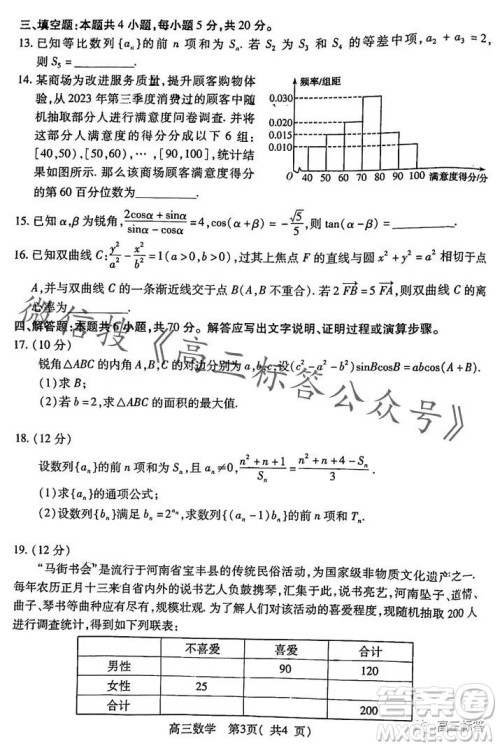 三、填空题：本题共 4 小题，每小题 5 分，共 20 分。
13. 已知等比数列{aₙ}的前 n 项和为 Sₙ. 若 S₂ 为 S₃ 和 S₄ 的等差中项，a₂ + a₃ = 2，
则 S₅ = ______.
14. 某商场为改进服务质量，提升顾客购物体
验，从 2023 年第三季度消费过的顾客中随
机抽取部分人进行满意度问卷调查. 并将
这部分人满意度的得分分成以下 6 组：
[40,50)，[50,60)，…，[90,100]，统计结
果如图所示. 那么该商场顾客满意度得分
的第 60 百分位数为______.
频率/组距
0.030
0.020
0.015
0.010
0.005
O 40 50 60 70 80 90 100 满意度得分/分
15. 已知 α,β 为锐角，(2cosα + sinα)/(sinα − cosα) = 4，cos(α + β) = −√5/5，则 tan(α − β) = ______.
16. 已知双曲线 C: y²/a² − x²/b² = 1(a > 0,b > 0)，过其上焦点 F 的直线与圆 x² + y² = a² 相切于点
A，并与双曲线 C 的一条渐近线交于点 B(A，B 不重合). 若 2FB→ = 5FA→，则双曲线 C 的离
心率为______.
四、解答题：本题共 6 小题，共 70 分。解答应写出文字说明、证明过程或演算步骤。
17. (10 分)
锐角△ABC 的内角 A,B,C 的对边分别为 a,b,c，设(c² − a² − b²)sinBcosB = abcos(A + B).
(1)求 B；
(2)若 b = 2，求△ABC 的面积的最大值.
18. (12 分)
设数列{aₙ}的前 n 项和为 Sₙ，且 aₙ ≠ 0，(n² + n + 1)/Sₙ = (n² + n + 4 − Sₙ)/3.
(1)求{aₙ}的通项公式；
(2)设数列{bₙ}满足 bₙ = 2^aₙ，求数列{(aₙ − 1)bₙ}的前 n 项和 Tₙ.
19. (12 分)
“马街书会”是流行于河南省宝丰县的传统民俗活动，为国家级非物质文化遗产之一.
每年农历正月十三来自省内外的说书艺人负鼓携琴，汇集于此，说书亮艺，河南坠子、道情、
曲子、琴书等曲种应有尽有，规模壮观. 为了解人们对该活动的喜爱程度，现随机抽取 200 人
进行调查统计，得到如下列联表：
不喜爱 喜爱 合计
男性 90 120
女性 25
合计 200
高三数学 第3页（共4 页）
微信搜《高三标答公众号》
答案圈
高三标答